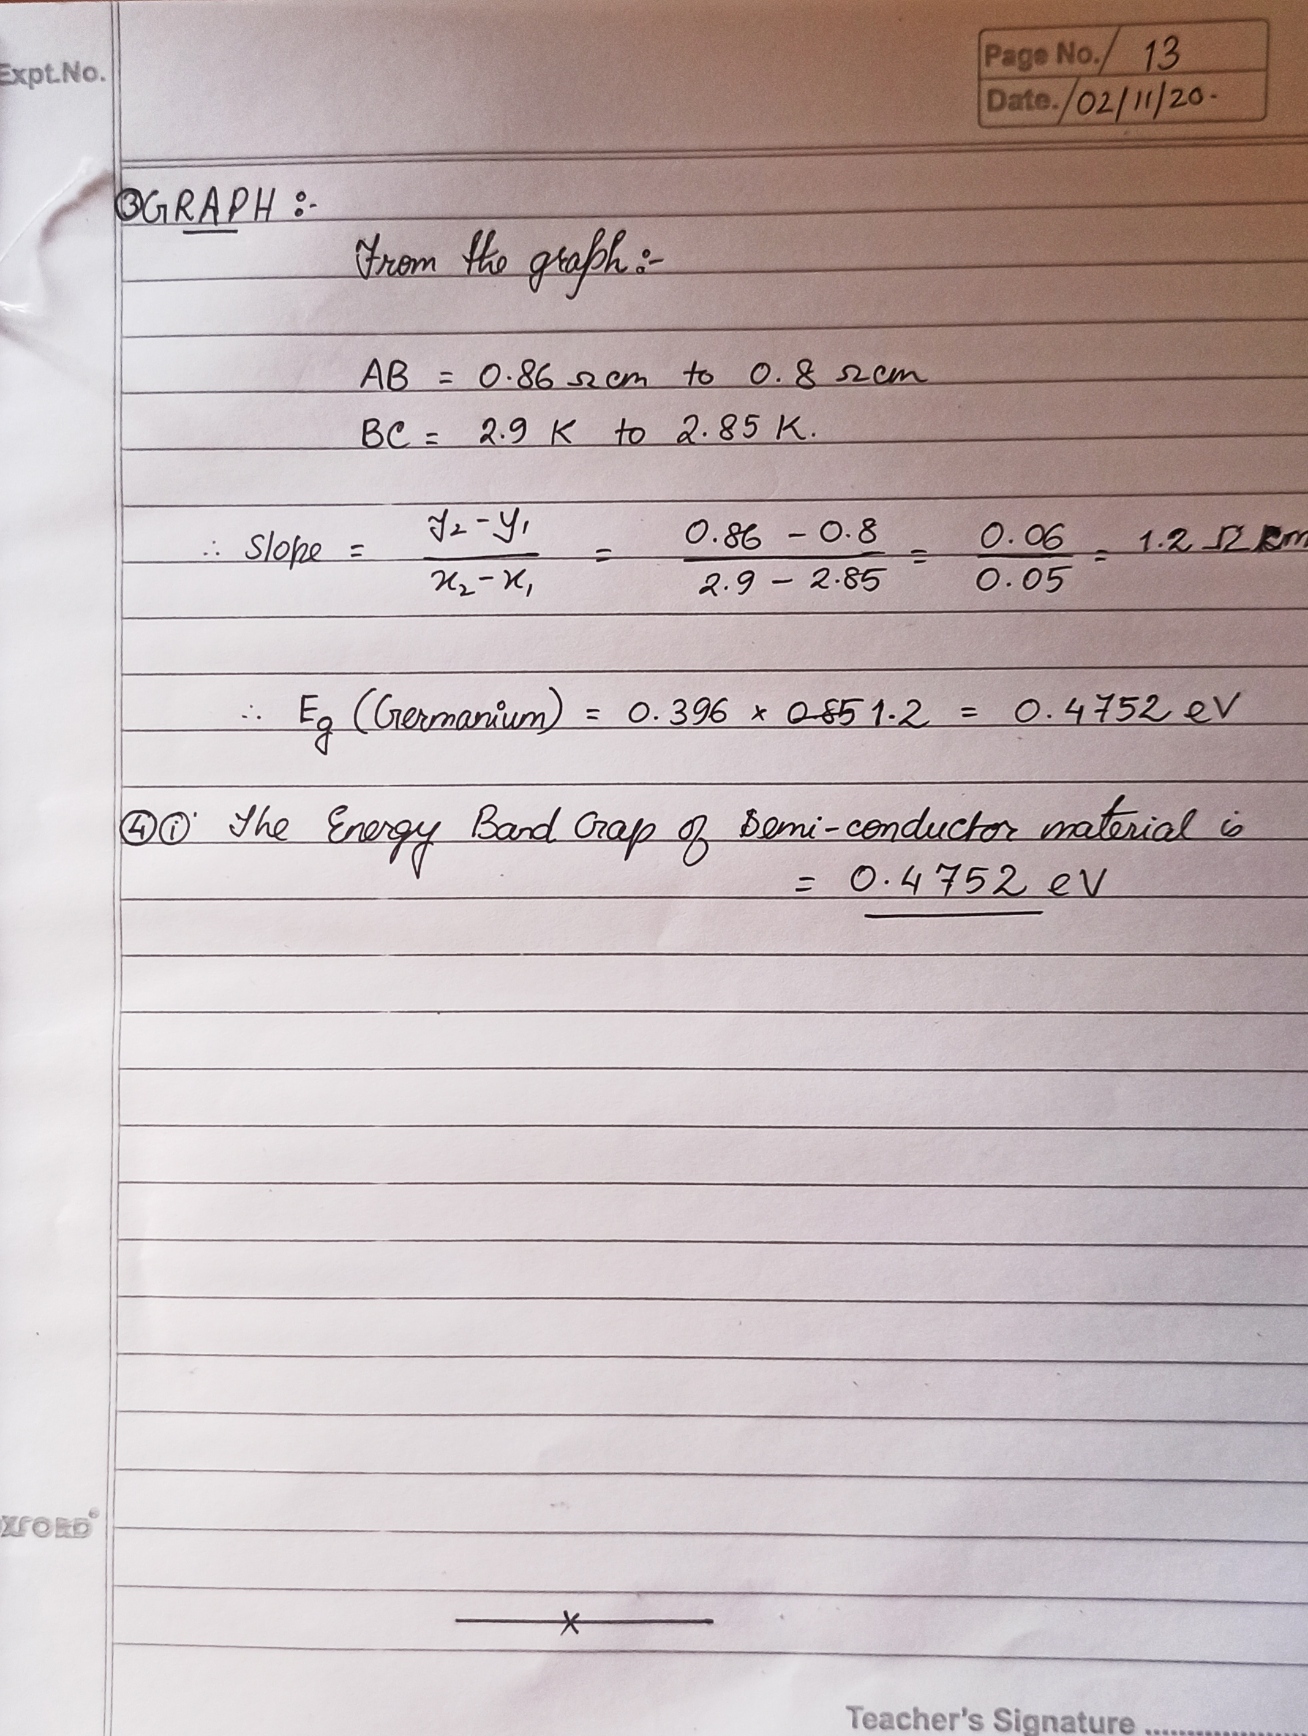 Expt.No.
Page No. 13
Date. 02/11/20.
③ GRAPH :-
From the graph :-
AB = 0.86 Ωcm to 0.8 Ωcm
BC = 2.9 K to 2.85 K.
∴ Slope = y₂-y₁ / x₂-x₁ = 0.86 - 0.8 / 2.9 - 2.85 = 0.06 / 0.05 = 1.2 Ω
∴ Eg (Germanium) = 0.396 × 1.2 = 0.4752 eV
④ ① The Energy Band Gap of Semi-conductor material is
= 0.4752 eV
XFORD
Teacher's Signature ............